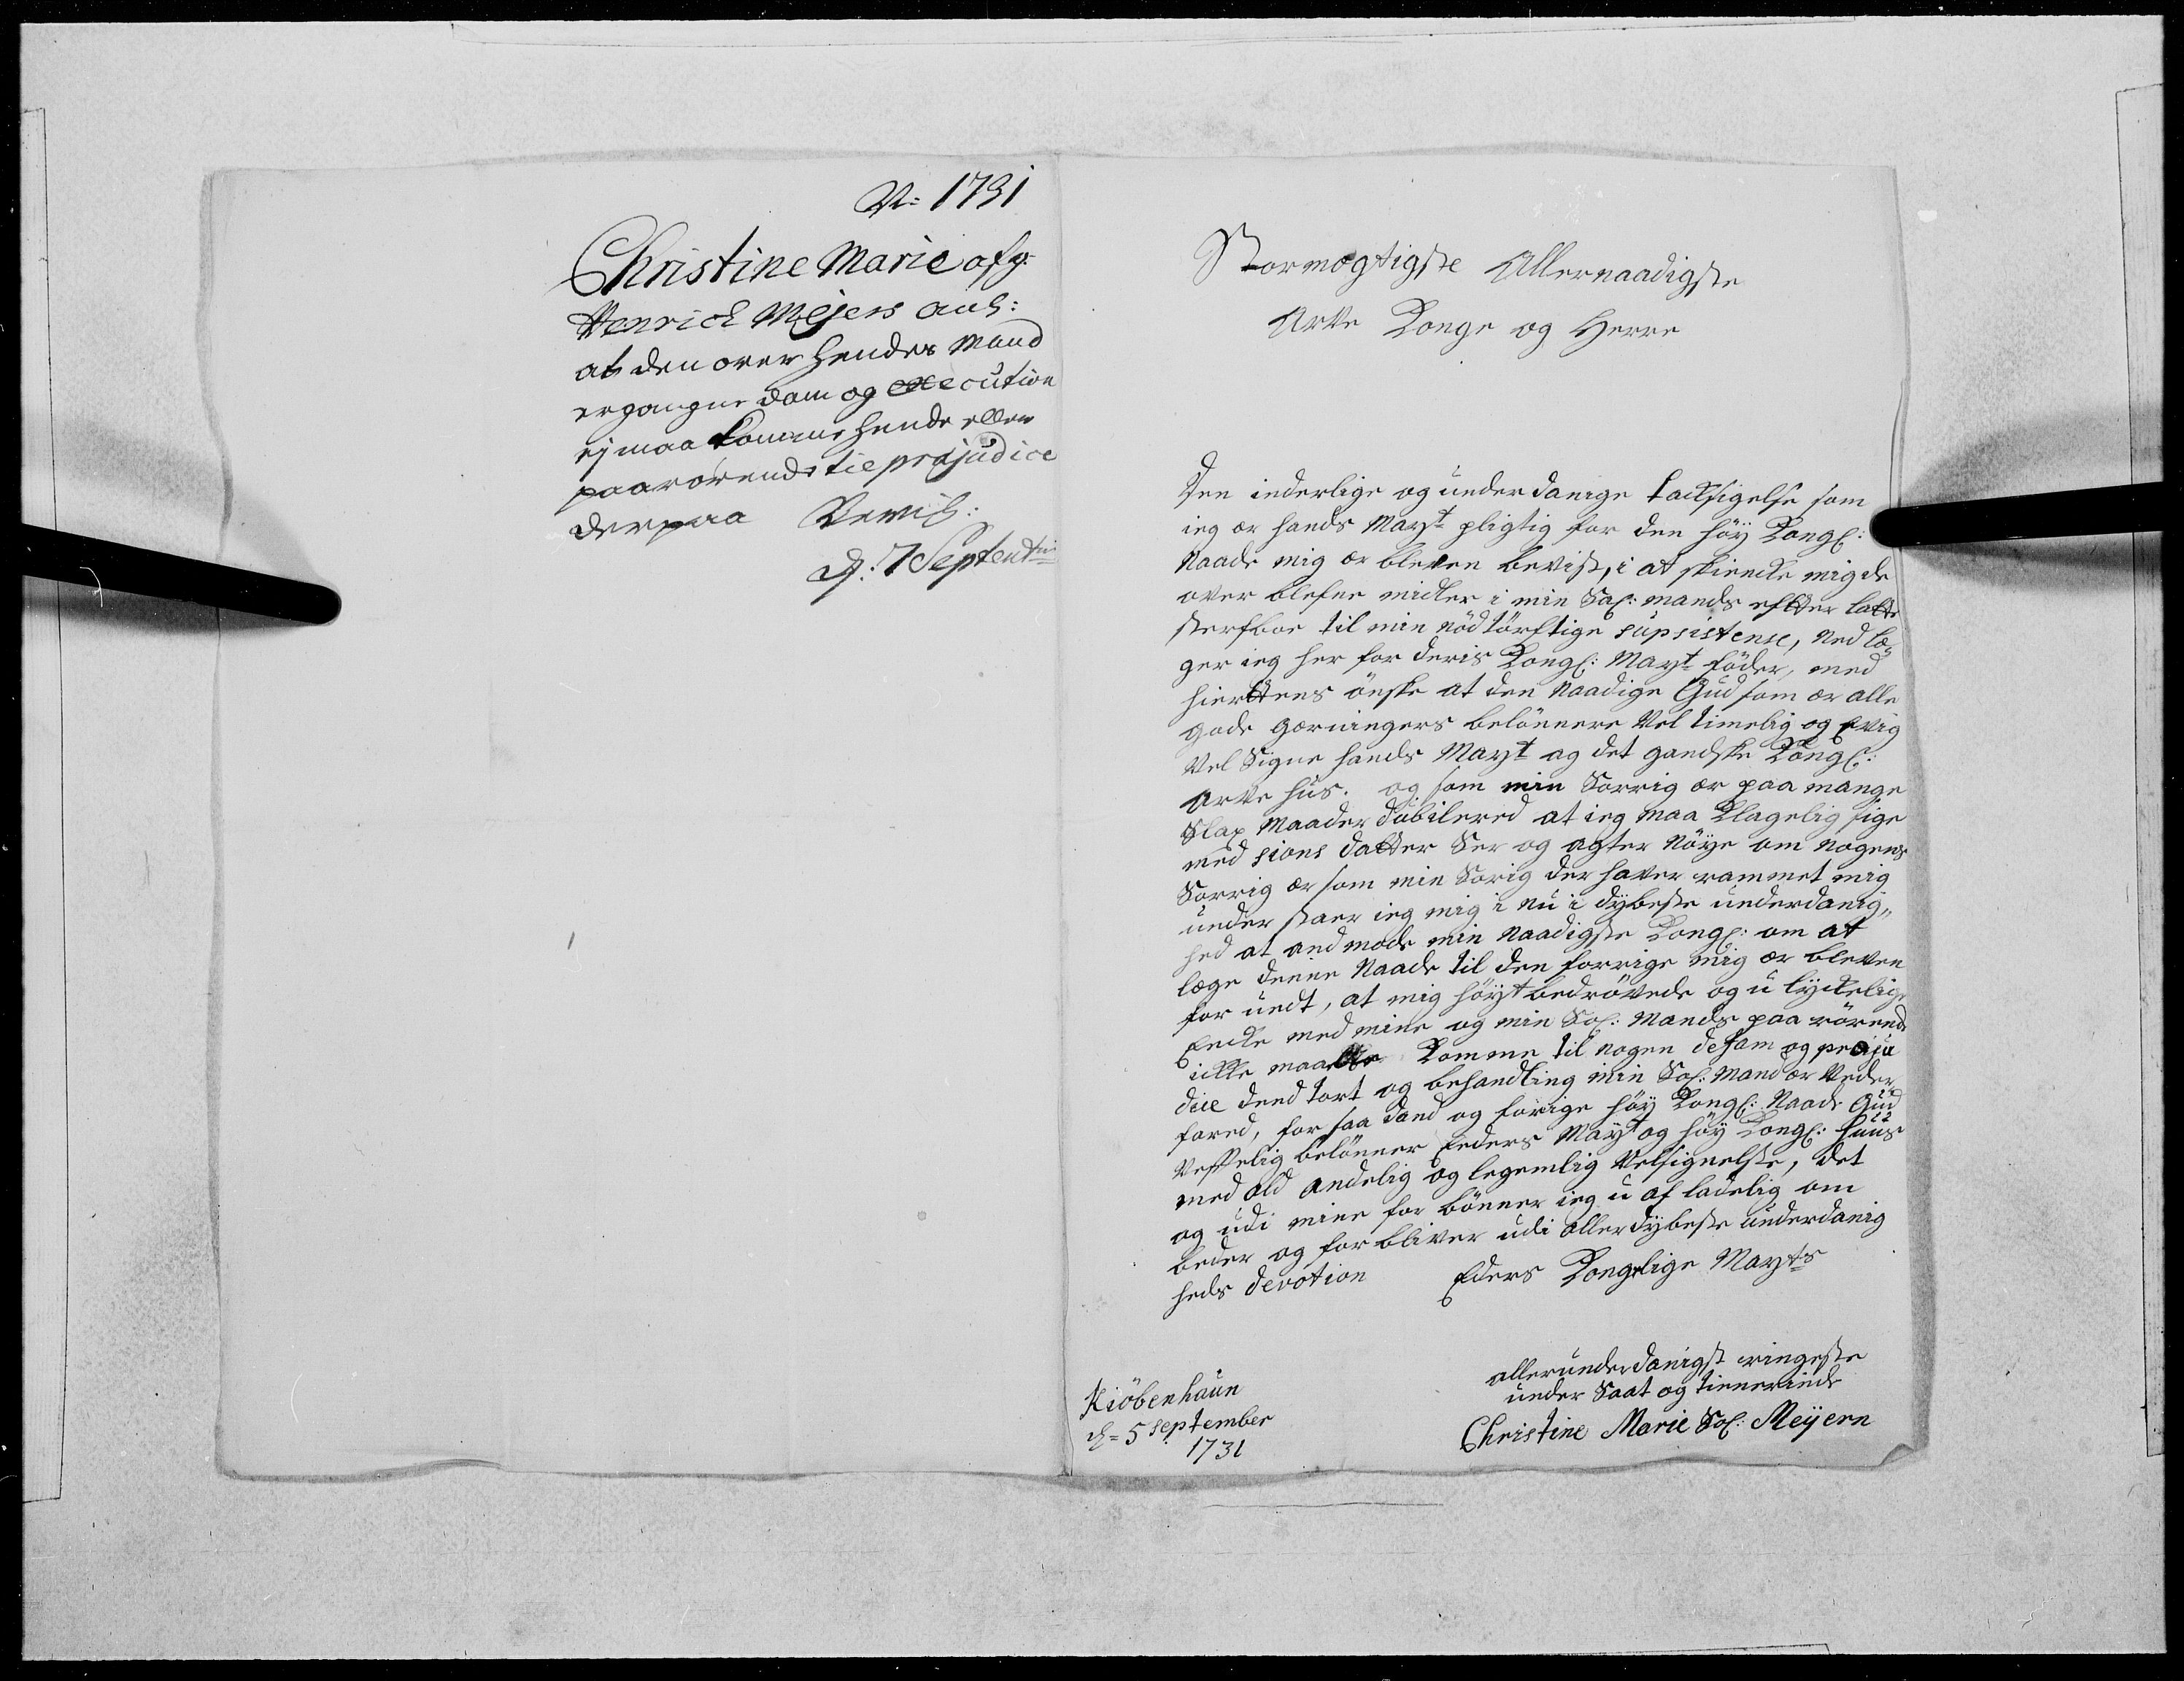 No: 1731
Christine Marie afg:
Henrich Mejers ans:
at den over hendes Mand
ergangne dom og execution
ej maa komme hende eller
paarörende til præjudice
derpaa Bevilg:
d: 7 Septembr
Stormægtigste Allernaadigste
Arve Konge og Herre
Den inderlige og underdanige tacksigelse som
ieg er hands Mayt pligtig for den höy Kongl:
Naade mig er bleven bevist, i at skiencke mig de
over blefne midler i min Sal: mands effter latte
sterfboe til min nödtörftige supsistense, Ned læ¬
ger ieg her for deris Kongl: Mayt föder, med
hierttens önske at den Naadige Gud som er alle
gode gerningers belönnere Vel timelig og Evig
Vel Signe hands Mayt og det gandske Kongl:
Arve hus. og som min Sorrig er paa mange
Slax Maader dubilered at ieg maa Klagelig sige
med sions datter Ser og agter Nöye om nogens
Sorrig er som min Sorig der haver rammet mig
under staer ieg mig i nu i dybeste underdanig„
hed at andmode min Naadigste Kongl: om at
læge denne Naade til den forrige mig er bleven
for undt, at mig höyt bedrövede og u lyckelige
Encke med mine og min Sal: Mands paa rörende
icke maatte Komme til nogen defam og præju
dice dend tort og behandling min Sal: Mand er Veder
fared, for saa dand og forige höy Kongl: Naade Gud
Visselig belönner Eders Mayt og höy Kongl: Huus
med ald andelig og legemlig Velsignelse, det
og udi mine for bönner ieg u af ladelig om
beder og for bliver udi aller dybeste underdanig
heds devotion Eders Konglige Mayts
Kiöbenhaun
d= 5 september
1731
allerunderdanigst ringeste
under Saat og tienerinde
Christine Marie Sal: Meÿern